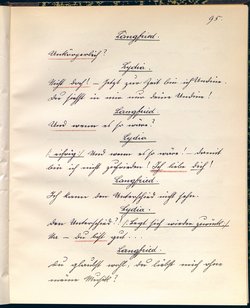 95.
Langfried.
Lydia.
Nicht doch! – Jetzt zur Zeit bin ich Undine
Du siehst in mir nur deine Undine!
Langfried.
Und wenn es so wäre?
Lydia
(eifrig) Und wenn es so wäre! – damit
bin ich nicht zufrieden! Ich liebe Dich!
Langfried.
Ich kenne den Unterschied nicht sehr.
Lydia.
Den Unterschied? (Legt sich wieder zurück)
Na – Du bist gut...
Langfried.
Du glaubst wohl, du liebst mich ohne
meine Musik?